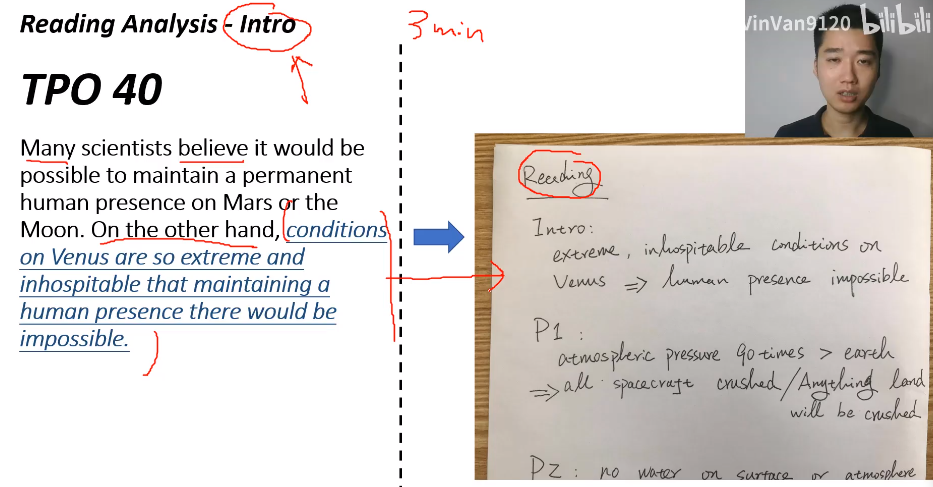 Reading Analysis - Intro
3 min
VinVan9120 bilibili
TPO 40
Many scientists believe it would be
possible to maintain a permanent
human presence on Mars or the
Moon. On the other hand, conditions
on Venus are so extreme and
inhospitable that maintaining a
human presence there would be
impossible.
Reading
Intro:
extreme, inhospitable conditions on
Venus ⇒ human presence impossible
P1:
atmospheric pressure 90 times > earth
⇒ all spacecraft crushed / Anything land
will be crushed
P2: no water on surface or atmosphere